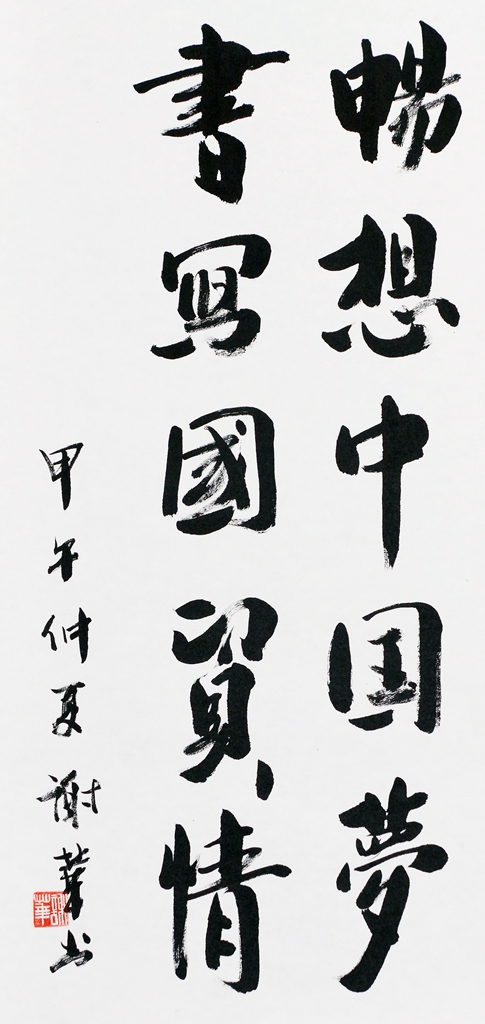 暢想中国夢
書寫國貿情
甲午仲夏 謝華书
謝華